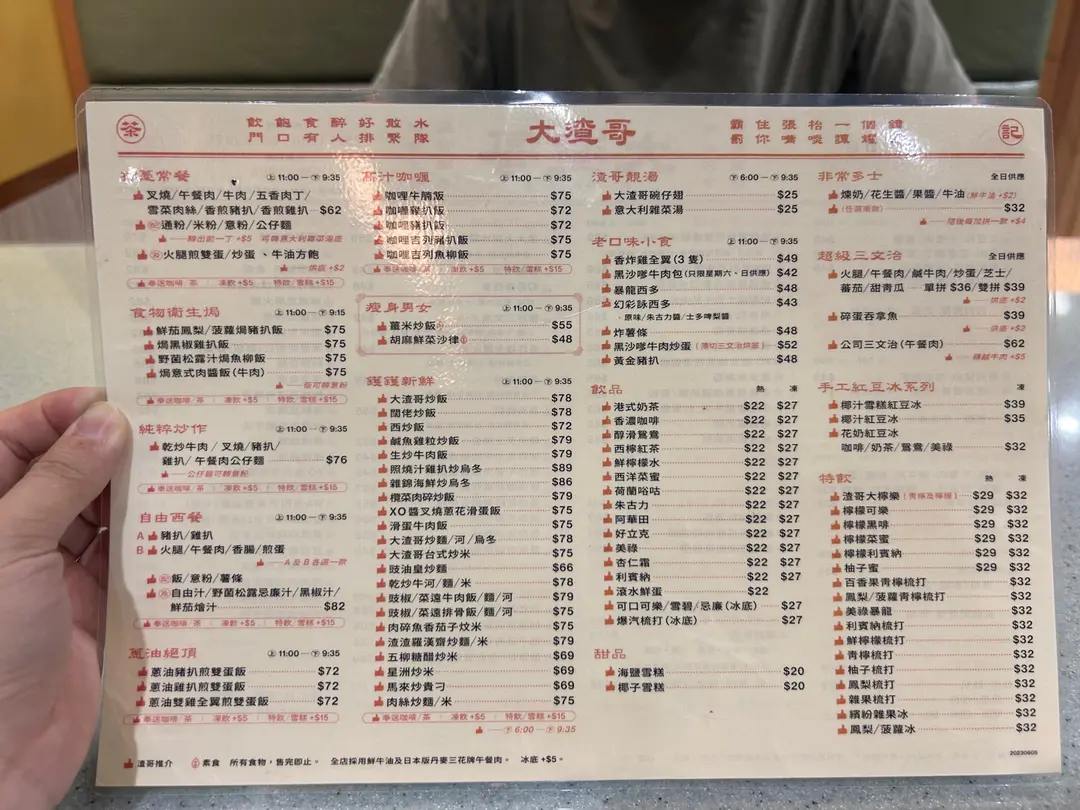 茶
飲飽食醉好散水
門口有人排緊隊
大渣哥
霸住張枱一個鐘
罰你嘴啖譚耀
記
常餐 上11:00—下9:35
叉燒/午餐肉/牛肉/五香肉丁/
雪菜肉絲/香煎豬扒/香煎雞扒 $62
配通粉/米粉/意粉/公仔麵
轉出前一丁+$5 可轉意大利雜菜湯底
配火腿煎雙蛋/炒蛋、牛油方飽
烘底+$2
奉送咖啡/茶 凍飲+$5 特飲/雪糕+$15
食物衛生焗 上11:00—下9:15
鮮茄鳳梨/菠蘿焗豬扒飯 $75
焗黑椒雞扒飯 $75
野菌松露汁焗魚柳飯 $75
焗意式肉醬飯(牛肉) $75
飯可轉意粉
奉送咖啡/茶 凍飲+$5 特飲/雪糕+$15
純粹炒作 上11:00—下9:35
乾炒牛肉/叉燒/豬扒/
雞扒/午餐肉公仔麵 $76
公仔麵可轉意粉
奉送咖啡/茶 凍飲+$5 特飲/雪糕+$15
自由西餐 上11:00—下9:35
A 豬扒/雞扒
B 火腿/午餐肉/香腸/煎蛋
A及B各選一款
配飯/意粉/薯條
自由汁/野菌松露忌廉汁/黑椒汁/
鮮茄燴汁 $82
奉送咖啡/茶 凍飲+$5 特飲/雪糕+$15
蔥油絕頂 上11:00—下9:35
蔥油豬扒煎雙蛋飯 $72
蔥油雞扒煎雙蛋飯 $72
蔥油雙雞全翼煎雙蛋飯 $72
奉送咖啡/茶 凍飲+$5 特飲/雪糕+$15
汁咖喱 上11:00—下9:35
咖喱牛腩飯 $75
咖喱雞扒飯 $72
咖喱豬扒飯 $72
咖喱吉列豬扒飯 $75
咖喱吉列魚柳飯 $75
奉送咖啡/茶 凍飲+$5 特飲/雪糕+$15
瘦身男女 上11:00—下9:35
薑米炒飯 $55
胡麻鮮菜沙律 $48
鑊鑊新鮮 上11:00—下9:35
大渣哥炒飯 $78
闊佬炒飯 $78
西炒飯 $72
鹹魚雞粒炒飯 $79
生炒牛肉飯 $79
照燒汁雞扒炒烏冬 $89
雜錦海鮮炒烏冬 $86
欖菜肉碎炒飯 $79
XO醬叉燒蔥花滑蛋飯 $75
滑蛋牛肉飯 $75
大渣哥炒麵/河/烏冬 $78
大渣哥台式炒米 $75
豉油皇炒麵 $66
乾炒牛河/麵/米 $78
豉椒/菜遠牛肉飯/麵/河 $79
豉椒/菜遠排骨飯/麵/河 $75
肉碎魚香茄子炆米 $75
渣渣羅漢齋炒麵/米 $79
五柳糖醋炒米 $69
星洲炒米 $69
馬來炒貴刁 $69
肉絲炒麵/米 $75
奉送咖啡/茶 凍飲+$5 特飲/雪糕+$15
下6:00—下9:35
渣哥靚湯 下6:00—下9:35
大渣哥碗仔翅 $25
意大利雜菜湯 $25
老口味小食 上11:00—下9:35
香炸雞全翼(3隻) $49
黑沙嗲牛肉包(只限星期六、日供應) $42
暴龍西多 $48
幻彩詠西多 $43
·原味/朱古力醬/士多啤梨醬
炸薯條 $48
黑沙嗲牛肉炒蛋(薄切三文治烘底) $52
黃金豬扒 $48
飲品 熱 凍
港式奶茶 $22 $27
香濃咖啡 $22 $27
醇滑鴛鴦 $22 $27
西檸紅茶 $22 $27
鮮檸檬水 $22 $27
西洋菜蜜 $22 $27
荷蘭谷咕 $22 $27
朱古力 $22 $27
阿華田 $22 $27
好立克 $22 $27
美祿 $22 $27
杏仁霜 $22 $27
利賓納 $22 $27
滾水鮮蛋 $22
可口可樂/雪碧/忌廉(冰底) $27
爆汽梳打(冰底) $27
甜品
海鹽雪糕 $20
椰子雪糕 $20
非常多士 全日供應
煉奶/花生醬/果醬/牛油(鮮牛油+$2)
(任選兩款) $32
隨後每加拼一款+$4
超級三文治 全日供應
火腿/午餐肉/鹹牛肉/炒蛋/芝士/
蕃茄/甜青瓜 單拼$36/雙拼$39
烘底+$2
碎蛋吞拿魚 $39
烘底+$2
公司三文治(午餐肉) $62
轉鹹牛肉+$5
手工紅豆冰系列 凍
椰汁雪糕紅豆冰 $39
椰汁紅豆冰 $35
花奶紅豆冰
咖啡/奶茶/鴛鴦/美祿 $32
特飲 熱 凍
渣哥大檸樂(青檸及檸檬) $29 $32
檸檬可樂 $29 $32
檸檬黑啡 $29 $32
檸檬菜蜜 $29 $32
檸檬利賓納 $29 $32
柚子蜜 $29 $32
百香果青檸梳打 $32
鳳梨/菠蘿青檸梳打 $32
美祿暴龍 $32
利賓納梳打 $32
鮮檸檬梳打 $32
青檸梳打 $32
柚子梳打 $32
鳳梨梳打 $32
雜果梳打 $32
繽紛雜果冰 $32
鳳梨/菠蘿冰 $32
20230605
渣哥推介 素食 所有食物，售完即止。 全店採用鮮牛油及日本版丹麥三花牌午餐肉。 冰底+$5。